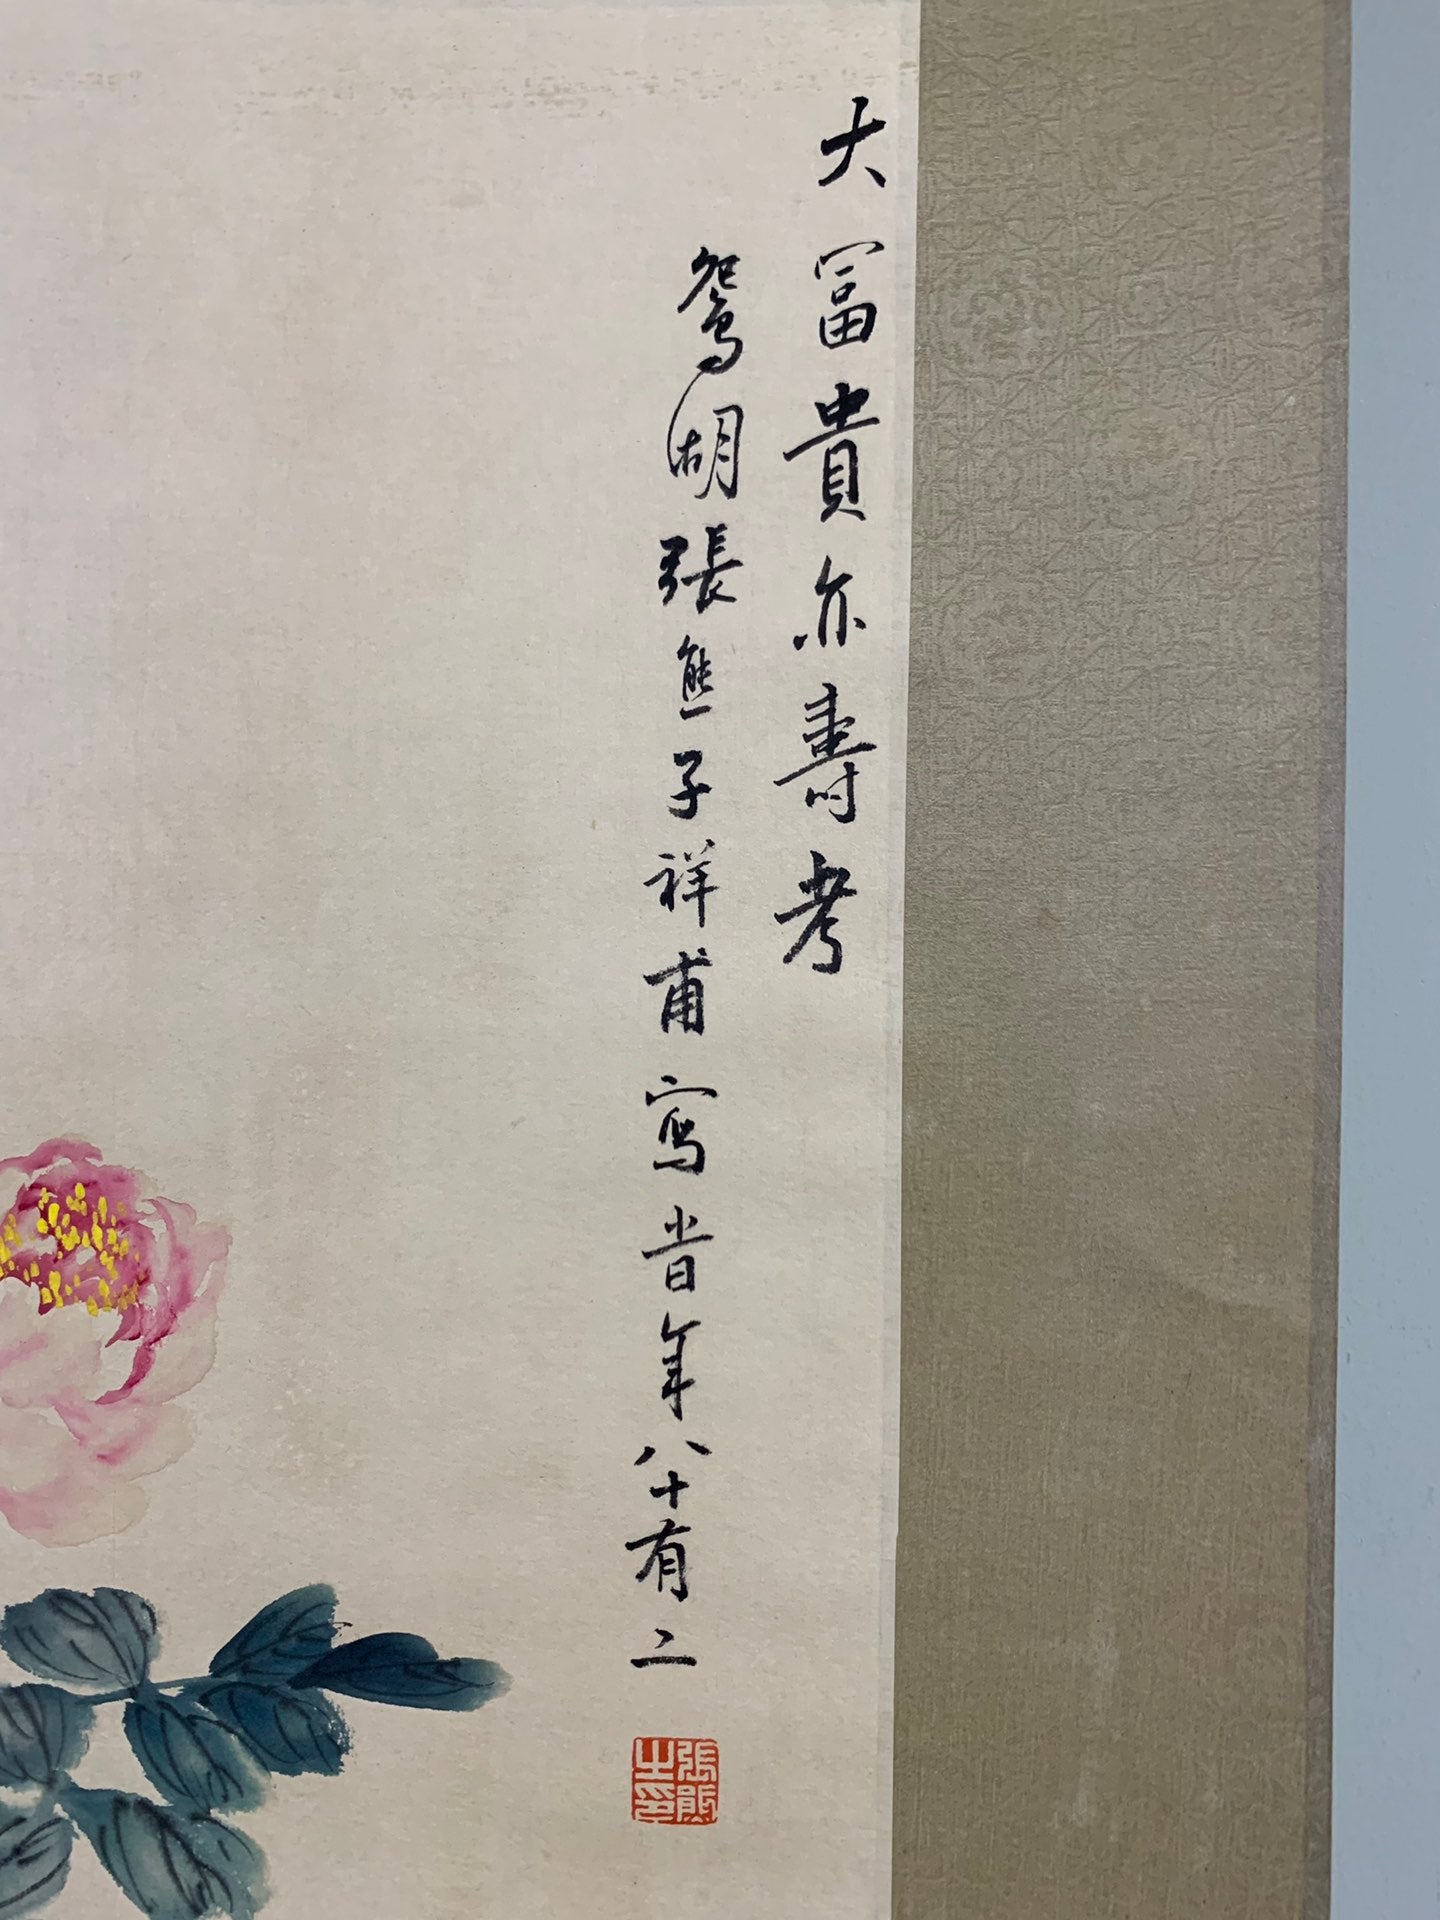 大冨貴亦壽考
鴛湖張熊子祥甫寫昔年八十有二
張熊之印